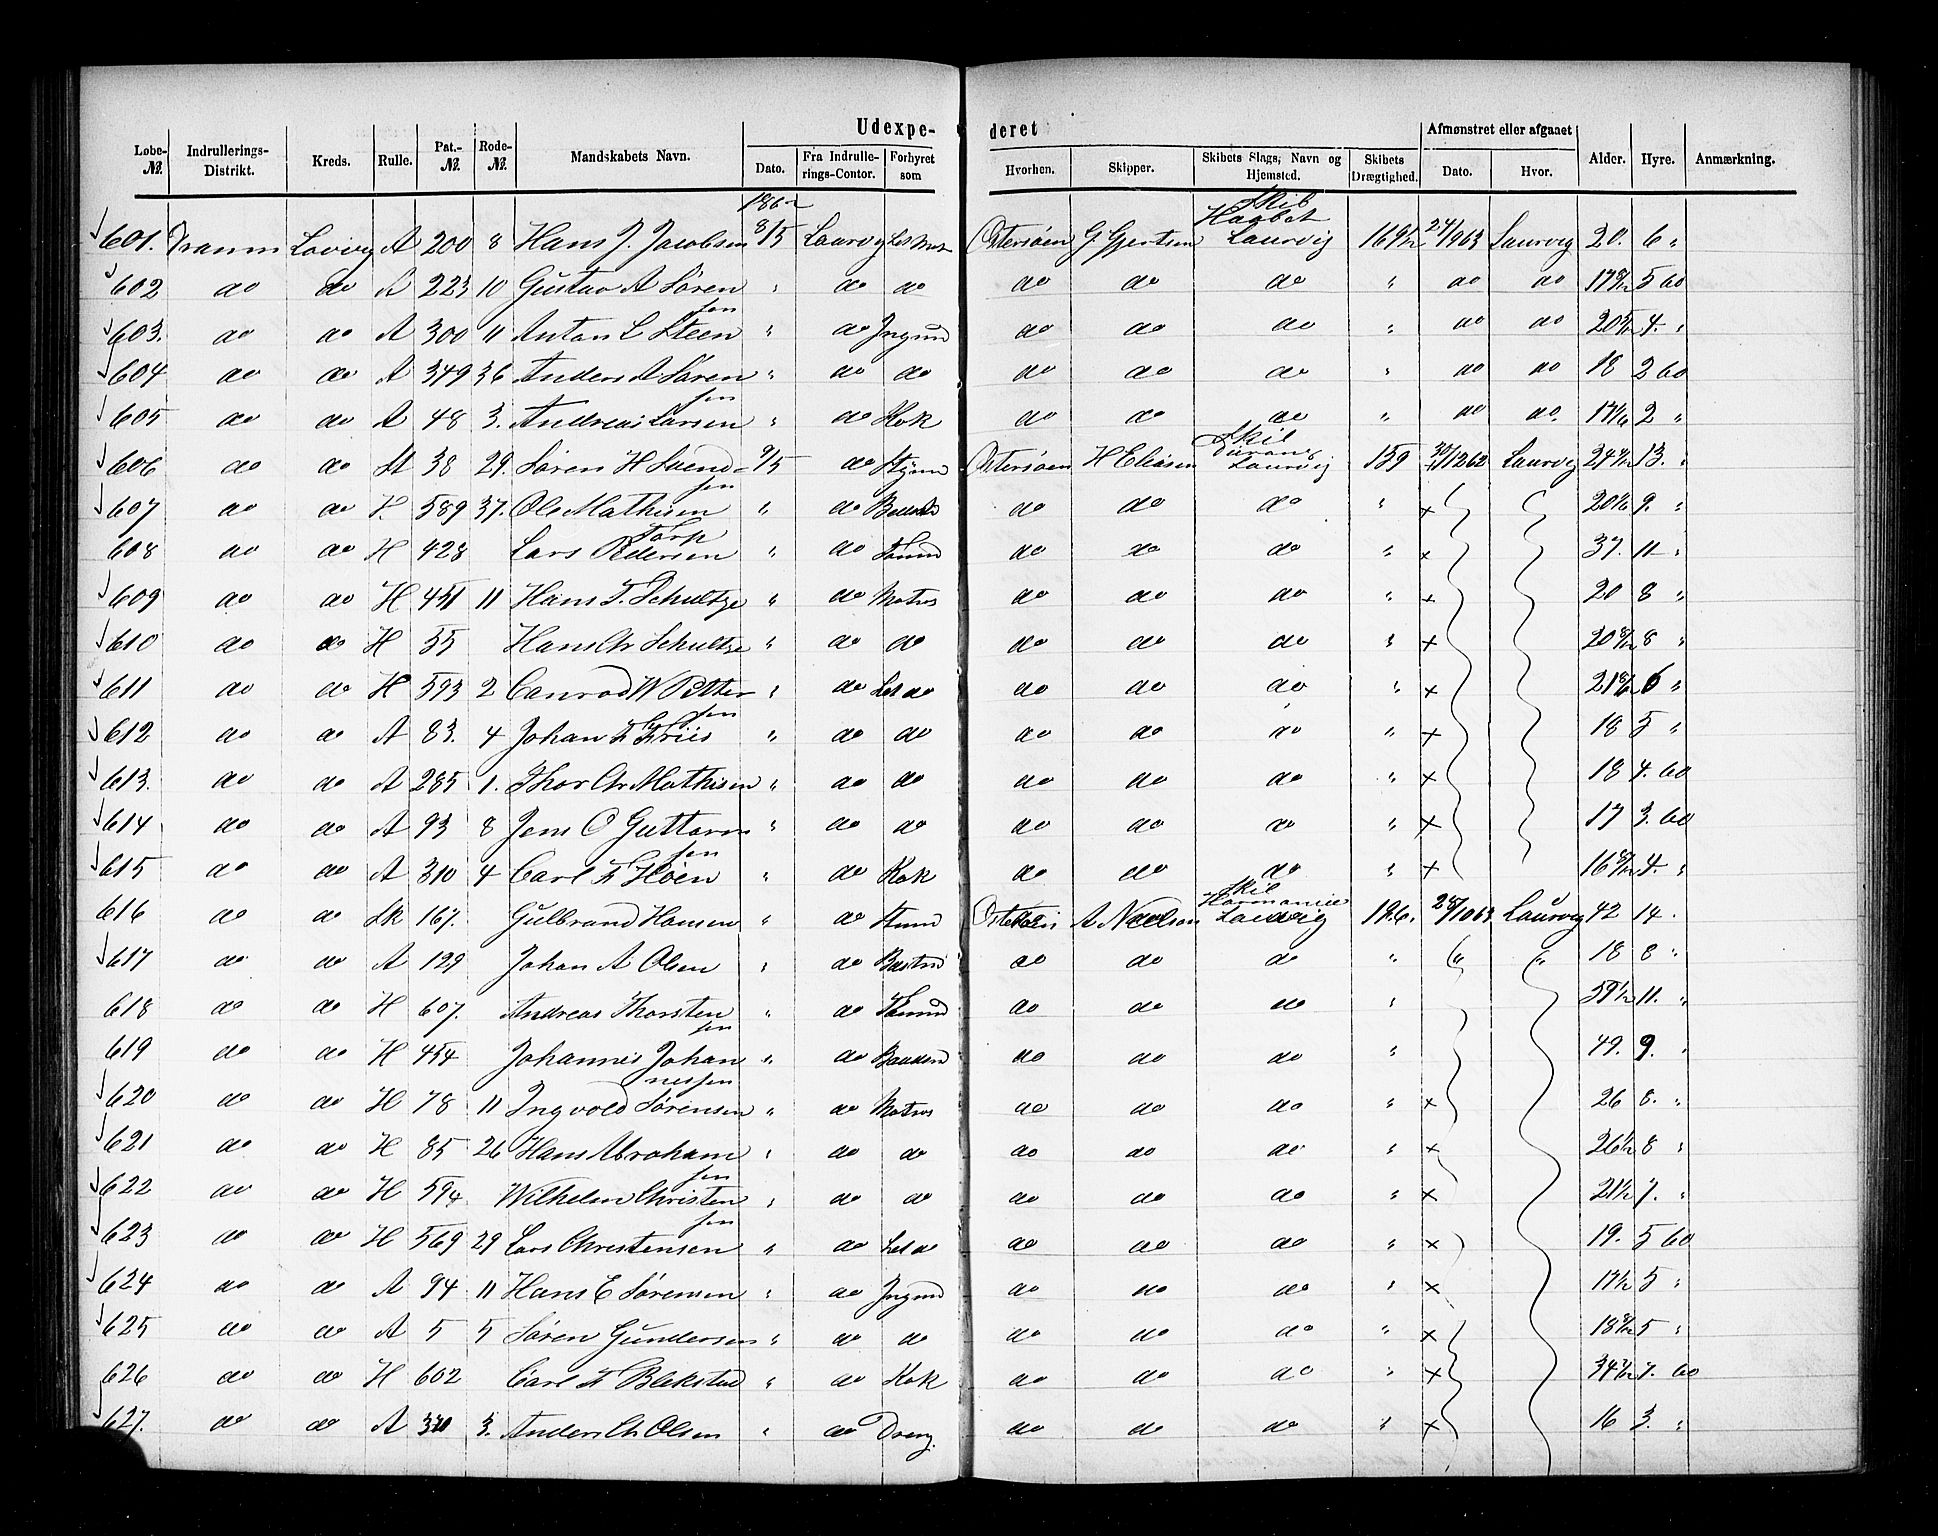 Udexpe- deret
Løbe-№. Indrullerings-Distrikt. Kreds. Rulle. Pat.-№. Rode-№. Mandskabets Navn. Dato. Fra Indrulle-rings-Contor. Forhyret som Hvorhen. Skipper. Skibets Slags, Navn og Hjemsted. Skibets Drægtighed. Afmønstret eller afgaaet Dato. Hvor. Alder. Hyre. Anmærkning.
1862
Skib
601. Lavrvig A 200 8 Hans J. Jacobsen 8/5 Laurvig Østersøen G. Gjertsen Laurvig 169 1/2 Laurvig 20. 6 "
602 do do A 223 10 Gustav A Sørensen " do do do do do " do do 5 60
603. do do A 300 11 Anton L Steen " do Jngmd do do do " do do 4. "
604 do do A 349 36 Anders A Sørensen " do do do do do " do do 18 2 60
605 do do A 48 3. Andreas Larsen " do Kok do do do " do do 2 "
Skib
606 do do 38 29. Søren H Svendsen 9/5 do Østersøen H Eliasen Laurvig 159 Laurvig 13. "
607 do do H. 589 37. Ole Mathisen " do do do do " x 9. "
Torp
608 do do H 428 Lars Pedersen " do do do do " x 37. 11 "
609 do do H 451 11 Hans F. Schultze " do Matros do do do " x 20 8 "
610 do do H 55 Hans Chr Schultze " do do do do do " x 8 "
611 do do H 593 2 Conrad W Pettersen " do do do do " x 6 "
612 do do A 83. 4 Johan F Friis " do do do do do " x 18 5 "
613. do do A 285 1. Thor Chr Mathisen " do do do do do " x 18 4. 60
614 do do A 93 8 Jens O Guttormsen " do do do do do " x 17 3. 60
615 do do A 310 4 Carl F Høen " do Kok do do do " x 4. "
Skib
616 do do 167. Gulbrand Hansen " do A. Neelsen Laurvig 126. Laurvig 42 14.
617 do do A 129 Johan A Olsen " do do do do " " " 18 8 "
618 do do H 607. Andreas Thorstensen " do do do do " 11. "
619 do do H 454 Johannes Johannessen " do do do do " 49. 9. "
620 do do H 78 11 Ingvold Sørensen " do Matros do do do " x 26 8. "
621 do do H 85 26 Hans Abrahamsen " do do do do do " x 26 1/2 8 "
622 do do H 594 Wilhelm Christensen " do do do do do " x 21 1/2 7. "
623 do do H 569 29 Lars Christensen " do do do do " x 19. 5 60
624 do do A 94 11 Hans E Sørensen " do Jngmd do do do " x 17 1/2 5 "
625 do do A 5 5 Søren Gundersen " do do do do do " x 5 "
626 do do H 602 Carl F Blekstad " do Kok do do do " x 7. 60
627. do do A 3. Anders Ch Olsen " do Dreng. do do do " x 16 3. "